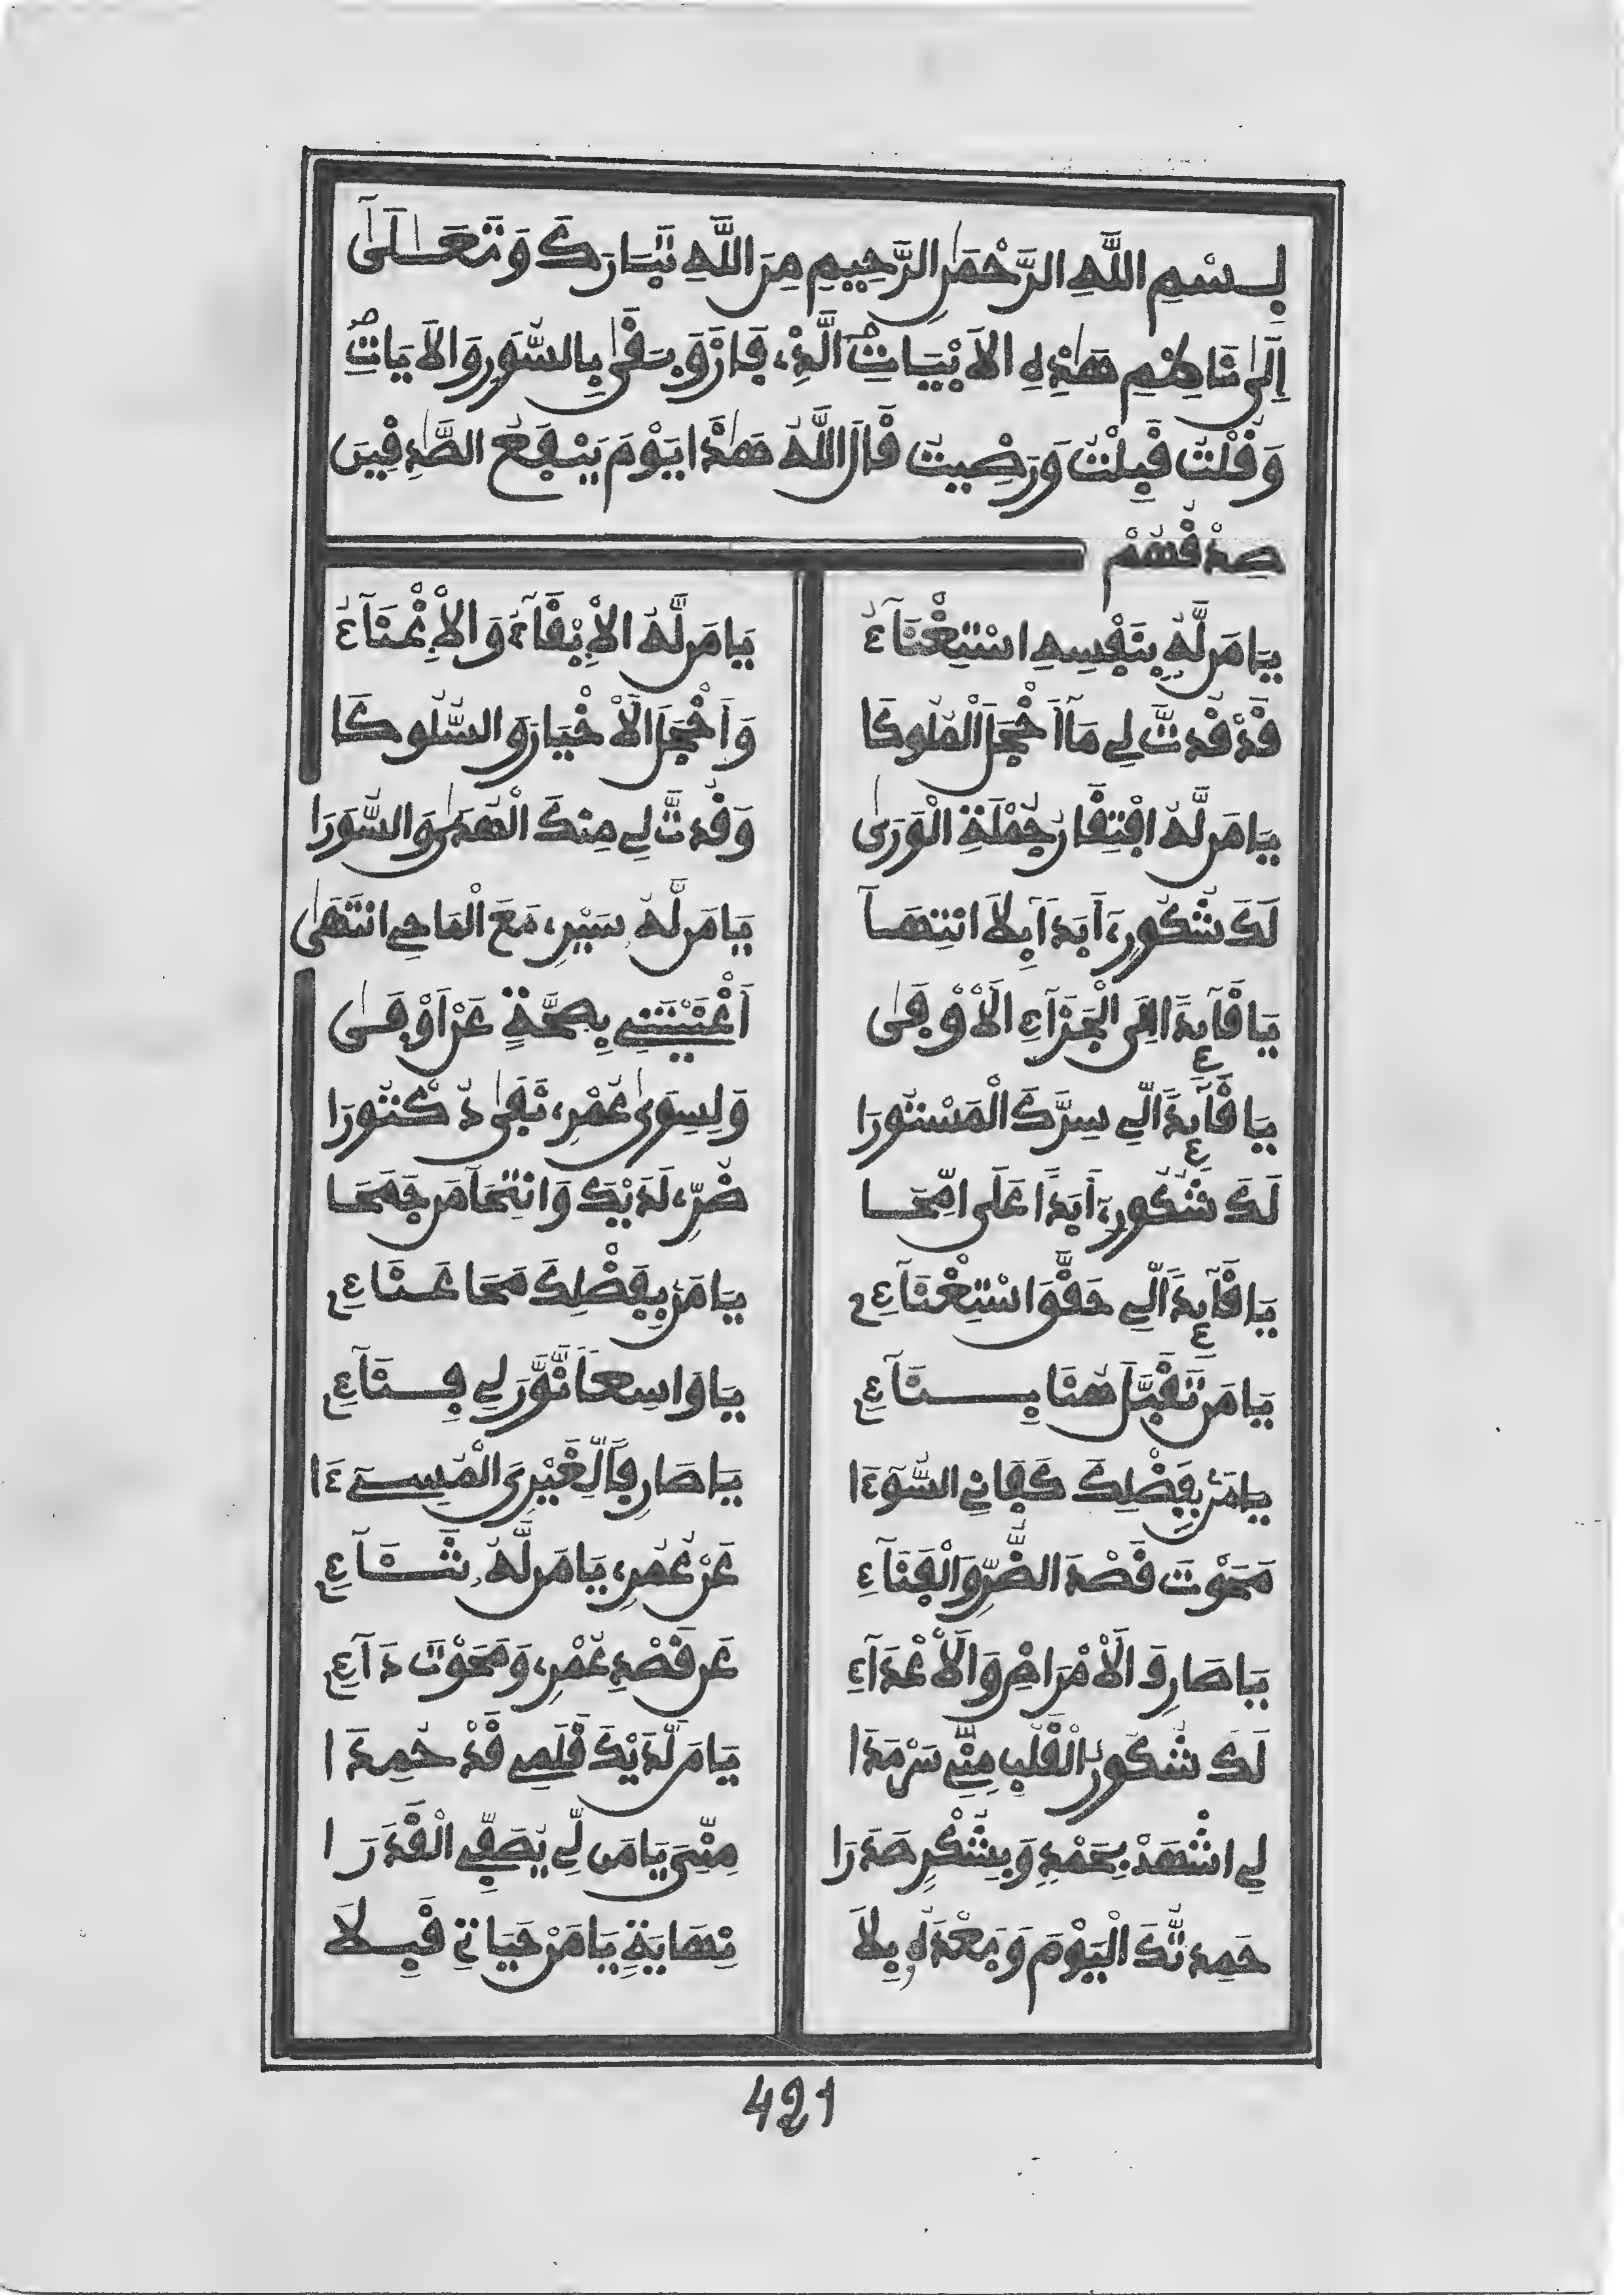 بِسْمِ اللَّهِ الرَّحْمَٰنِ الرَّحِيمِ مِنَ اللَّهِ تَبَارَكَ وَتَعَالَىٰ
إِلَىٰ نَاظِمِ هَٰذِهِ الْأَبْيَاتِ الَّذِي فَازَ وَبَقَىٰ بِالسُّوَرِ وَالْآيَاتِ
وَقُلْتُ قَبِلْتُ وَرَضِيتُ قَالَ اللَّهُ هَٰذَا يَوْمُ يَنْفَعُ الصَّٰدِقِينَ
صِدْقُهُمْ
يَا مَن لَّهُ بِنَفْسِهِ اسْتِغْنَآءُ يَا مَن لَّهُ الْإِبْقَآءُ وَالْإِغْنَآءُ
قَدْ قُدتَّ لِي مَآ أَخْجَلَ الْمُلُوكَا وَأَخْجَلَ الْأَخْيَارَ وَالسُّلُوكَا
يَا مَن لَّهُ افْتِقَارُ جُمْلَةِ الْوَرَىٰ وَقُدتَّ لِي مِنكَ الْهُدَىٰ وَالسُّوَرَا
لَكَ شُكُورِي أَبَدًا بِلَا انْتِهَآ يَا مَن لَّهُ سَيْرِي مَعَ الْمَاحِي انتَهَىٰ
يَا قَآئِدًا إِلَيَّ الْجَزَآءِ الْأَوْفَىٰ أَغْنَيْتَنِي بِصِحَّةٍ عَنْ أَوْفَىٰ
يَا قَآئِدًا لِّي سِرَّكَ الْمَسْتُورَا وَلِسِوَىٰ عُمْرِي نَفَىٰ دُكْتُورَا
لَكَ شُكُورِي أَبَدًا عَلَى امِّحَا ضُرِّي لَدَيْكَ وَانْتِحَا مَن جَمَحَا
يَا قَآئِدًا لِّي حَقَّقَ اسْتِغْنَآءِي يَا مَنْ بِفَضْلِكَ مَحَا عَنَاءِي
يَا مَن تَقَبَّلَ هُنَا بِنَآءِي يَا وَاسِعًا نَّوَّرَ لِي فِنَآءِي
يَا مَنْ بِفَضْلِكَ كَفَانِي السُّوءَا يَا صَارِفًا لِّغَيْرِيَ الْمُسِيٓءَا
مَحَوْتَ قَصْدَ الضُّرِّ وَالْفَنَآءِ عَنْ عُمُرِي يَا مَن لَّهُ ثَنَآءِي
يَا صَارِفَ الْأَمْرَاضِ وَالْأَعْدَآءِ عَن قَصْدِ عُمْرِي وَمَحَوْتَ دَآءِي
لَكَ شُكُورُ الْقَلْبِ مِنِّي سَرْمَدَا يَا مَن لَّدَيْكَ قَلَمِي قَدْ حَمِدَا
لِي اشْهَدْ بِحَمْدٍ وَبِشُكْرٍ صَدَرَا مِنِّيَ يَا مَن لِّي يُصَفِّي الْقَدَرَا
حَمِدتُّكَ الْيَوْمَ وَبَعْدَهُ بِلَا نِهَايَةٍ يَا مَنْ حَيَاتِي قَبِلَا
421